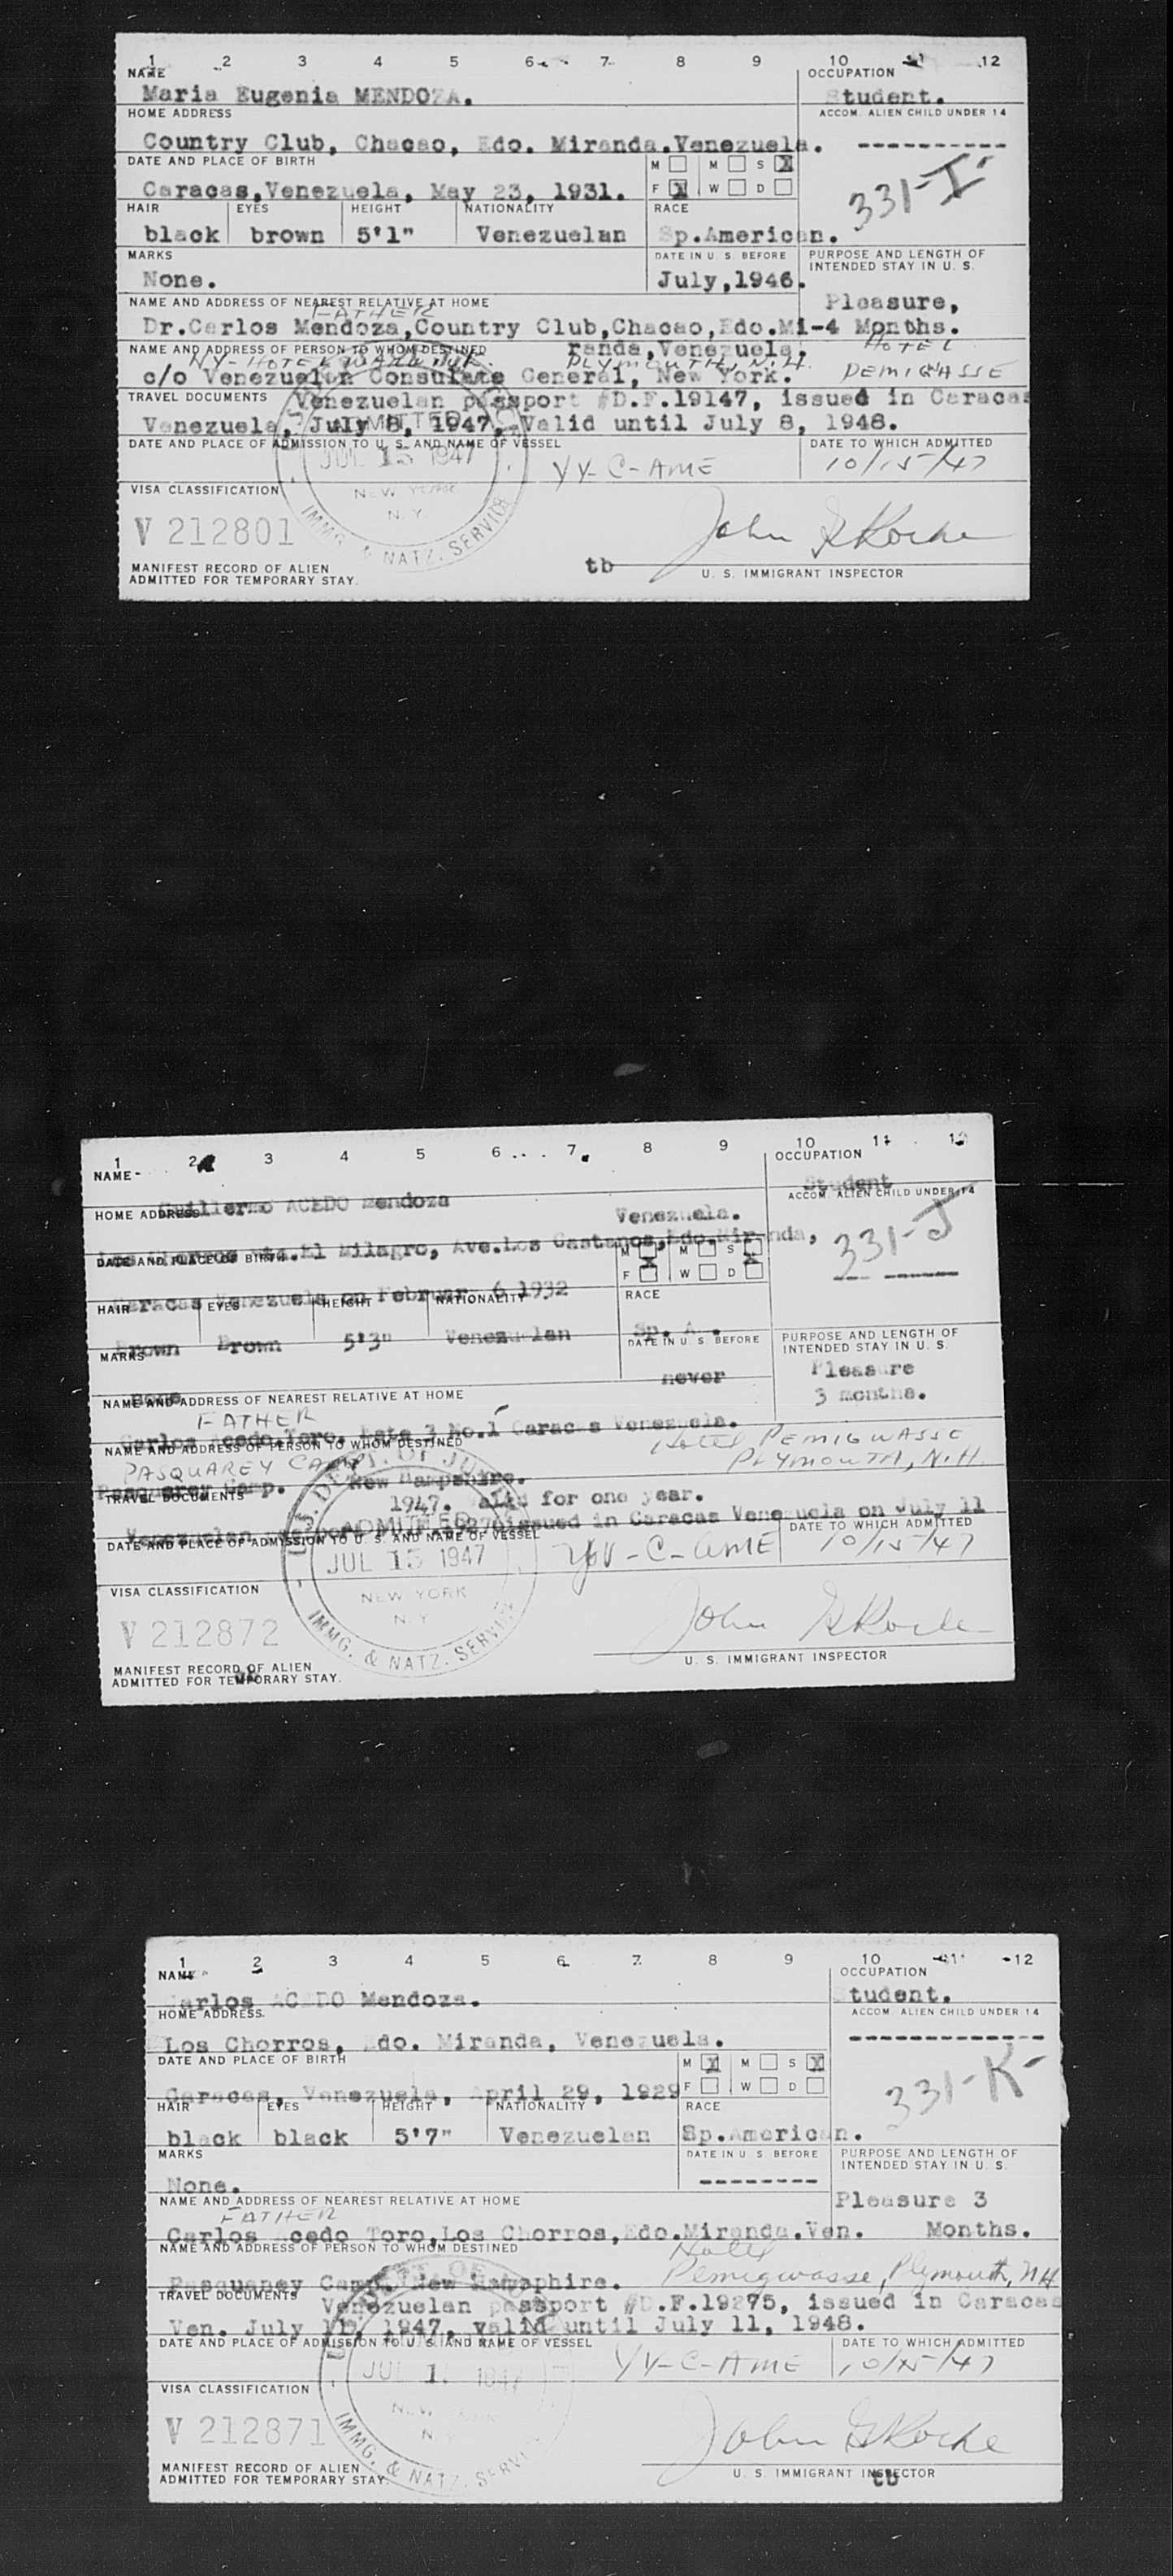 1 2 3 4 5 6 7 8 9 10 11 12
NAME OCCUPATION
Maria Eugenia MENDOZA. Student.
HOME ADDRESS ACCOM. ALIEN CHILD UNDER 14
Country Club, Chacao, Edo. Miranda.Venezuela. ----------
DATE AND PLACE OF BIRTH M M S X
Caracas,Venezuela, May 23, 1931. F X W D 331-I
HAIR EYES HEIGHT NATIONALITY RACE
black brown 5'1" Venezuelan Sp.American.
MARKS DATE IN U. S. BEFORE PURPOSE AND LENGTH OF INTENDED STAY IN U. S.
None. July,1946.
NAME AND ADDRESS OF NEAREST RELATIVE AT HOME Pleasure,
FATHER
Dr.Carlos Mendoza,Country Club,Chacao,Edo.Mi-4 Months.
NAME AND ADDRESS OF PERSON TO WHOM DESTINED randa,Venezuela. HOTEL
NY-HOTEL PLYMOUTH, N.H. PEMIGWASSE
c/o Venezuelan Consulate General, New York.
TRAVEL DOCUMENTS Venezuelan passport #D.F.19147, issued in Caracas
Venezuela, July 8, 1947, Valid until July 8, 1948.
DATE AND PLACE OF ADMISSION TO U. S. AND NAME OF VESSEL DATE TO WHICH ADMITTED
ADMITTED JUL 15 1947 YV-C-AME 10/15/47
VISA CLASSIFICATION NEW YORK N.Y.
V 212801 IMMG. & NATZ. SERVICE John Roche
MANIFEST RECORD OF ALIEN tb U. S. IMMIGRANT INSPECTOR
ADMITTED FOR TEMPORARY STAY.
1 2 3 4 5 6 7 8 9 10 11 12
NAME OCCUPATION
Guillermo ACEDO Mendoza Student
HOME ADDRESS Venezuela. ACCOM. ALIEN CHILD UNDER 14
Los Chorros Qta.El Milagro, Ave.Los Castanos,Edo.Miranda, 331-J
DATE AND PLACE OF BIRTH M X M S X
Caracas Venezuela on February 6 1932 F W D
HAIR EYES HEIGHT NATIONALITY RACE
Brown Brown 5'3" Venezuelan Sp. A.
MARKS DATE IN U. S. BEFORE PURPOSE AND LENGTH OF INTENDED STAY IN U. S.
None never Pleasure
NAME AND ADDRESS OF NEAREST RELATIVE AT HOME 3 months.
FATHER
Carlos Acedo Toro. No.1 Caracas Venezuela.
NAME AND ADDRESS OF PERSON TO WHOM DESTINED Hotel PEMIGWASSE
PASQUAREY CAMP PLYMOUTH, N.H.
Pasquarey Camp. New Hampshire.
TRAVEL DOCUMENTS 1947. Valid for one year.
Venezuelan passport issued in Caracas Venezuela on July 11
DATE AND PLACE OF ADMISSION TO U. S. AND NAME OF VESSEL DATE TO WHICH ADMITTED
ADMITTED JUL 15 1947 YV-C-AME 10/15/47
VISA CLASSIFICATION NEW YORK N.Y.
V 212872 IMMG. & NATZ. SERVICE John Roche
MANIFEST RECORD OF ALIEN U. S. IMMIGRANT INSPECTOR
ADMITTED FOR TEMPORARY STAY.
1 2 3 4 5 6 7 8 9 10 11 12
NAME OCCUPATION
Carlos ACEDO Mendoza. Student.
HOME ADDRESS ACCOM. ALIEN CHILD UNDER 14
Los Chorros, Edo. Miranda, Venezuela. -------------
DATE AND PLACE OF BIRTH M X M S X
Caracas, Venezuela, April 29, 1929 F W D 331-K
HAIR EYES HEIGHT NATIONALITY RACE
black black 5'7" Venezuelan Sp.American.
MARKS DATE IN U. S. BEFORE PURPOSE AND LENGTH OF INTENDED STAY IN U. S.
None. --------
NAME AND ADDRESS OF NEAREST RELATIVE AT HOME Pleasure 3
FATHER
Carlos Acedo Toro,Los Chorros,Edo.Miranda.Ven. Months.
NAME AND ADDRESS OF PERSON TO WHOM DESTINED Hotel
Pasquaney Camp, New Hampshire. Pemigwasse, Plymouth, NH
TRAVEL DOCUMENTS Venezuelan passport #D.F.19275, issued in Caracas
Ven. July 11, 1947, valid until July 11, 1948.
DATE AND PLACE OF ADMISSION TO U. S. AND NAME OF VESSEL DATE TO WHICH ADMITTED
JUL 1 1947 YV-C-AME 10/15/47
VISA CLASSIFICATION
V 212871 IMMG. & NATZ. SERV John Roche
MANIFEST RECORD OF ALIEN U. S. IMMIGRANT INSPECTOR
ADMITTED FOR TEMPORARY STAY. tb